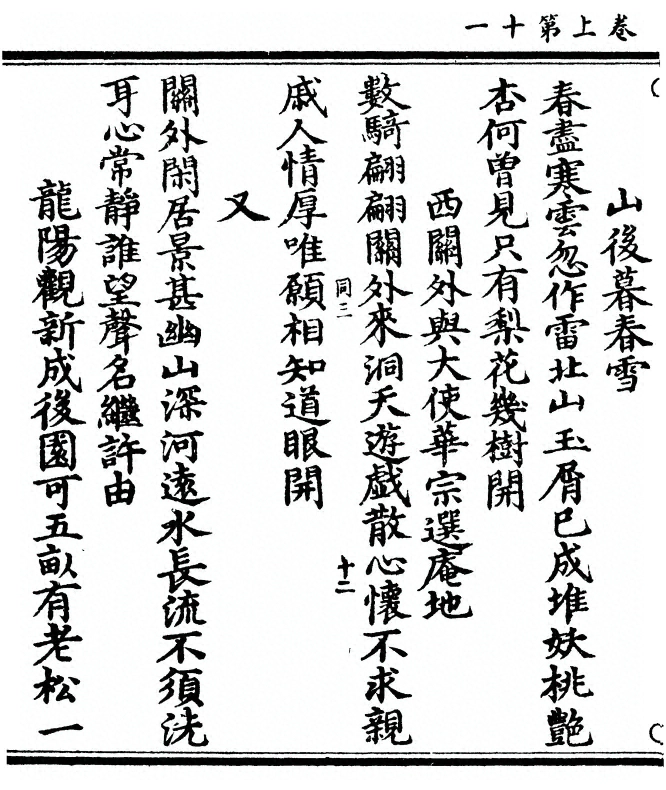 卷上第十一
山後暮春雪
春盡寒雲忽作雷北山玉屑已成堆妖桃艷
杏何曾見只有梨花幾樹開
西關外與大使華宗選庵地
數騎翩翩關外來洞天遊戯散心懷不求親
同三
十二
戚人情厚唯願相知道眼開
又
關外閑居景甚幽山深河遠水長流不須洗
耳心常靜誰望聲名繼許由
龍陽觀新成後園可五畝有老松一